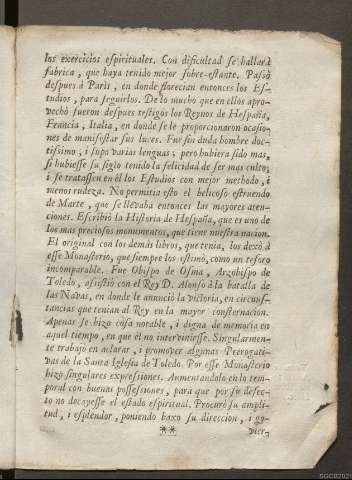 los exercicios espirituales. Con dificultad se hallarà
fabrica, que haya tenido mejor sobre-estante. Passò
despues à Paris, en donde florecian entonces los Es-
tudios, para seguirlos. De lo mucho que en ellos apro-
vechò fueron despues testigos los Reynos de Hespaña,
Francia, Italia, en donde se le proporcionaron ocasio-
nes de manifestar sus luces. Fue sin duda hombre doc-
tissimo; i supo varias lenguas; pero hubiera sido mas,
si hubiesse su siglo tenido la felicidad de ser mas culto,
i se tratassen en èl los Estudios con mejor methodo, i
menos rudeza. No permitia esto el belicoso estruendo
de Marte, que se llevaba entonces las mayores aten-
ciones. Escribiò la Historia de Hespaña, que es uno de
los mas preciosos monumentos, que tiene nuestra nacion.
El original con los demàs libros, que tenia, los dexò à
esse Monasterio, que siempre los estimò, como un tesoro
incomparable. Fue Obispo de Osma, Arzobispo de
Toledo, assistiò con el Rey D. Alonso à la batalla de
las Navas, en donde le anunciò la victoria, en circuns-
tancias que tenian al Rey en la mayor consternacion.
Apenas se hizo cosa notable, i digna de memoria en
aquel tiempo, en que èl no interviniesse. Singularmen-
te trabajò en aclarar, i promover algunas Prerogati-
vas de la Santa Iglesia de Toledo. Por esse Monasterio
hizo singulares expressiones. Aumentandolo en lo tem-
poral con buenas possessiones, para que por su defec-
to no decayesse el estado espiritual. Procurò su ampli-
tud, i esplendor, poniendo baxo su direccion, i go-
** vier-